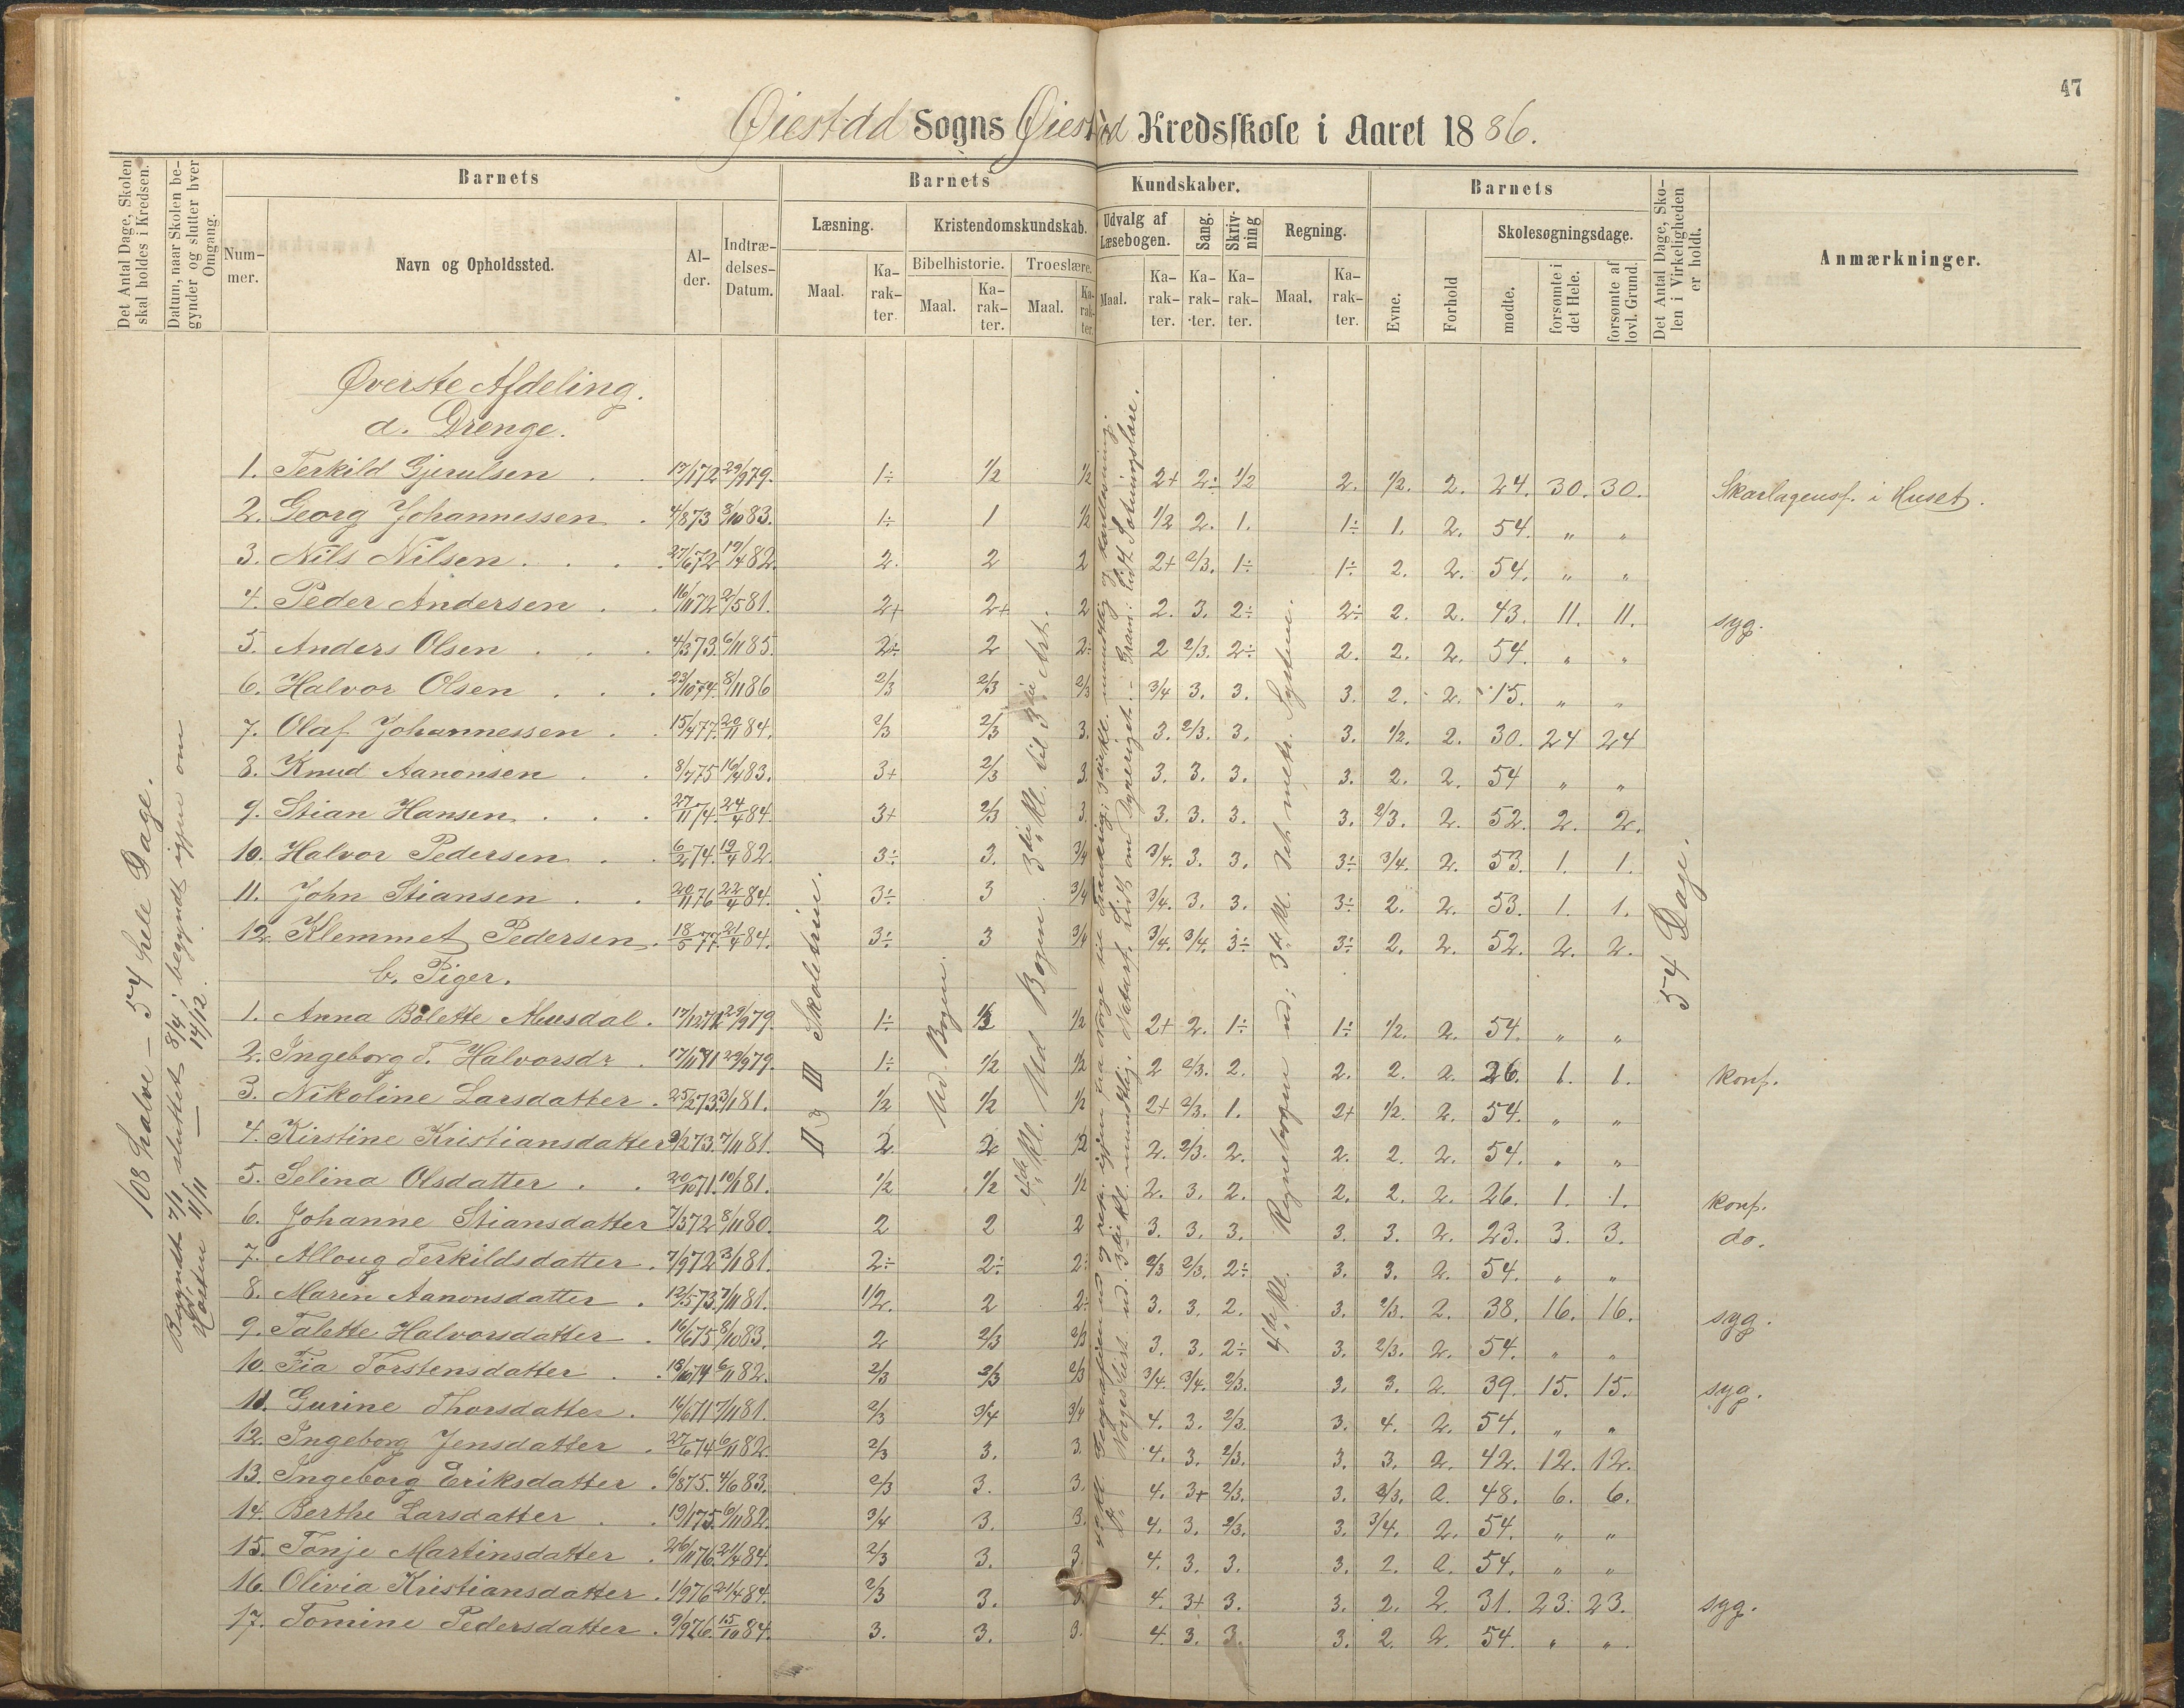 47
Øiestad Sogns Øiestad Kredsskole i Aaret 1886.
Det Antal Dage, Skolen skal holdes i Kredsen.
Datum, naar Skolen begynder og slutter hver Omgang.
Barnets
Nummer.
Navn og Opholdssted.
Alder.
Indtrædelses-Datum.
Barnets Kundskaber.
Læsning.
Maal.
Karakter.
Kristendomskundskab.
Bibelhistorie.
Maal.
Karakter.
Troeslære.
Maal.
Karakter.
Udvalg af Læsebogen.
Maal.
Karakter.
Sang.
Karakter.
Skrivning
Karakter.
Regning.
Maal.
Karakter.
Barnets
Evne.
Forhold
Skolesøgningsdage.
mødte.
forsømte i det Hele.
forsømte af lovl. Grund.
Det Antal Dage, Skolen i Virkeligheden er holdt.
Anmærkninger.
108 halve – 54 hele Dage.
Begyndt 7/1 sluttet 8/4; begyndt igjen om
Høsten 11/11 — 14/12.
II og III Skoletrin.
Ud. Bogen.
4de Kl. Ud Bogen. 3die Kl. til 3die Art.
4de Kl. Regnebogen ud; 3die Kl. Det metr. System.
54 Dage.
Øverste Afdeling.
a. Drenge.
1. Terkild Gjerulsen 17/1 72 29/9 79. 1÷ 1/2 1/2 2+ 2÷ 1/2 2. 1/2. 2. 24. 30. 30. Skarlagensf. i Huset.
2. Georg Johannessen 4/8 73 8/10 83. 1÷ 1 1/2 1/2 2. 1. 1÷ 1. 2. 54. " "
3. Nils Nilsen 27/6 72 19/4 82. 2. 2 2 2+ 2/3. 1÷ 1÷ 2. 2. 54. " "
4. Peder Andersen 16/11 72 2/5 81. 2+ 2+ 2 2. 3. 2÷ 2÷ 2. 2. 43. 11. 11. syg.
5. Anders Olsen 4/3 73. 6/11 85. 2÷ 2 2÷ 2 2/3. 2÷ 2. 2. 2. 54. " "
6. Halvor Olsen 23/10 74. 8/11 86 2/3 2/3 2/3 3/4 3. 3. 3. 2. 2. 15. " "
7. Olaf Johannessen 15/4 77. 20/11 84. 2/3 2/3 3. 3. 2/3. 3. 3. 1/2. 2. 30. 24 24
8. Knud Aanonsen 8/7 75 16/4 83. 3+ 2/3 3. 3. 3. 3. 3. 2. 2. 54 " "
9. Stian Hansen 27/11 74. 24/4 84. 3+ 2/3 3. 3. 3. 3. 3. 2/3. 2. 52. 2. 2.
10. Halvor Pedersen 6/2 74. 19/4 82. 3÷ 3. 3/4 3/4. 3. 3. 3÷ 3/4. 2. 53. 1. 1.
11. John Stiansen 20/11 76 22/4 84. 3÷ 3 3/4 3/4. 3. 3. 3÷ 2. 2. 53. 1. 1.
12 Klemmet Pedersen. 18/5 77. 21/4 84. 3÷ 3 3/4 3/4. 3/4. 3÷ 3÷ 2. 2. 52. 2. 2.
b. Piger.
1. Anna Bolette Musdal. 29/9 79. 1÷ 1/2 2+ 2. 1÷ 1÷ 1/2. 2. 54. " "
2. Ingeborg T. Halvorsdr. 17/11 71 29/9 79. 1÷ 1/2 1/2 2 2/3. 2. 2. 2. 2. 26. 1. 1. konf.
3. Nikoline Larsdatter. 25/2 73. 3/1 81. 1/2 1/2 1/2 2+ 2/3. 1. 2+ 1/2. 2. 54. " "
4. Kirstine Kristiansdatter 3/2 73. 7/11 81. 2. 2 2. 2/3. 2. 2. 2. 2. 54. " "
5. Selina Olsdatter 20/10 71. 10/1 81. 1/2 1/2 1/2 2. 3. 2. 2. 2. 2. 26. 1. 1. konf.
6. Johanne Stiansdatter 7/3 72 8/11 80. 2 2 2 3. 3. 3. 3. 3. 2. 23. 3. 3. do.
7. Alloug Terkildsdatter. 7/9 72 3/1 81. 2÷ 2÷ 2÷ 2/3 2/3. 2÷ 3. 3. 2. 54. " "
8. Maren Aanonsdatter. 12/5 73. 7/11 81. 1/2. 2 2÷ 3. 3. 2. 3. 2/3. 2. 38. 16. 16. syg.
9. Talette Halvorsdatter. 16/6 75 8/10 83. 2 2/3 2/3 3. 3. 2÷ 3. 2/3. 2. 54. " "
10. Fia Torstensdatter 18/10 74 6/11 82. 2/3 2/3 2/3 3/4. 3/4. 2/3. 3. 3. 2. 39. 15. 15. syg.
11. Gurine Thorsdatter. 16/6 71 7/11 81. 2/3 3/4 3/4 4. 3. 2/3. 3. 4. 2. 54. " "
12. Ingeborg Jensdatter. 27/6 74 6/11 82. 2/3 3. 3. 4. 3. 2/3. 3. 3. 2. 42. 12. 12.
13. Ingeborg Eriksdatter. 6/8 75. 4/6 83. 2/3 3. 3. 4. 3+ 2/3. 3. 2/3. 2. 48. 6. 6.
14. Berthe Larsdatter 19/1 75. 6/11 82. 3/4 3. 3. 4. 3. 2/3. 3. 3/4. 2. 54. " "
15. Tonje Martinsdatter. 26/11 76. 21/4 84. 2/3 3. 3 4. 3. 3. 3. 2. 2. 54. " "
16. Olivia Kristiansdatter. 1/9 76 21/4 84. 2/3 3. 4. 3+ 3. 3. 2. 2. 31. 23. 23. syg.
17. Tomine Pedersdatter. 9/9 76. 15/10 84. 3. 3. 3. 4. 3. 3. 3. 2. 2. 54. " "